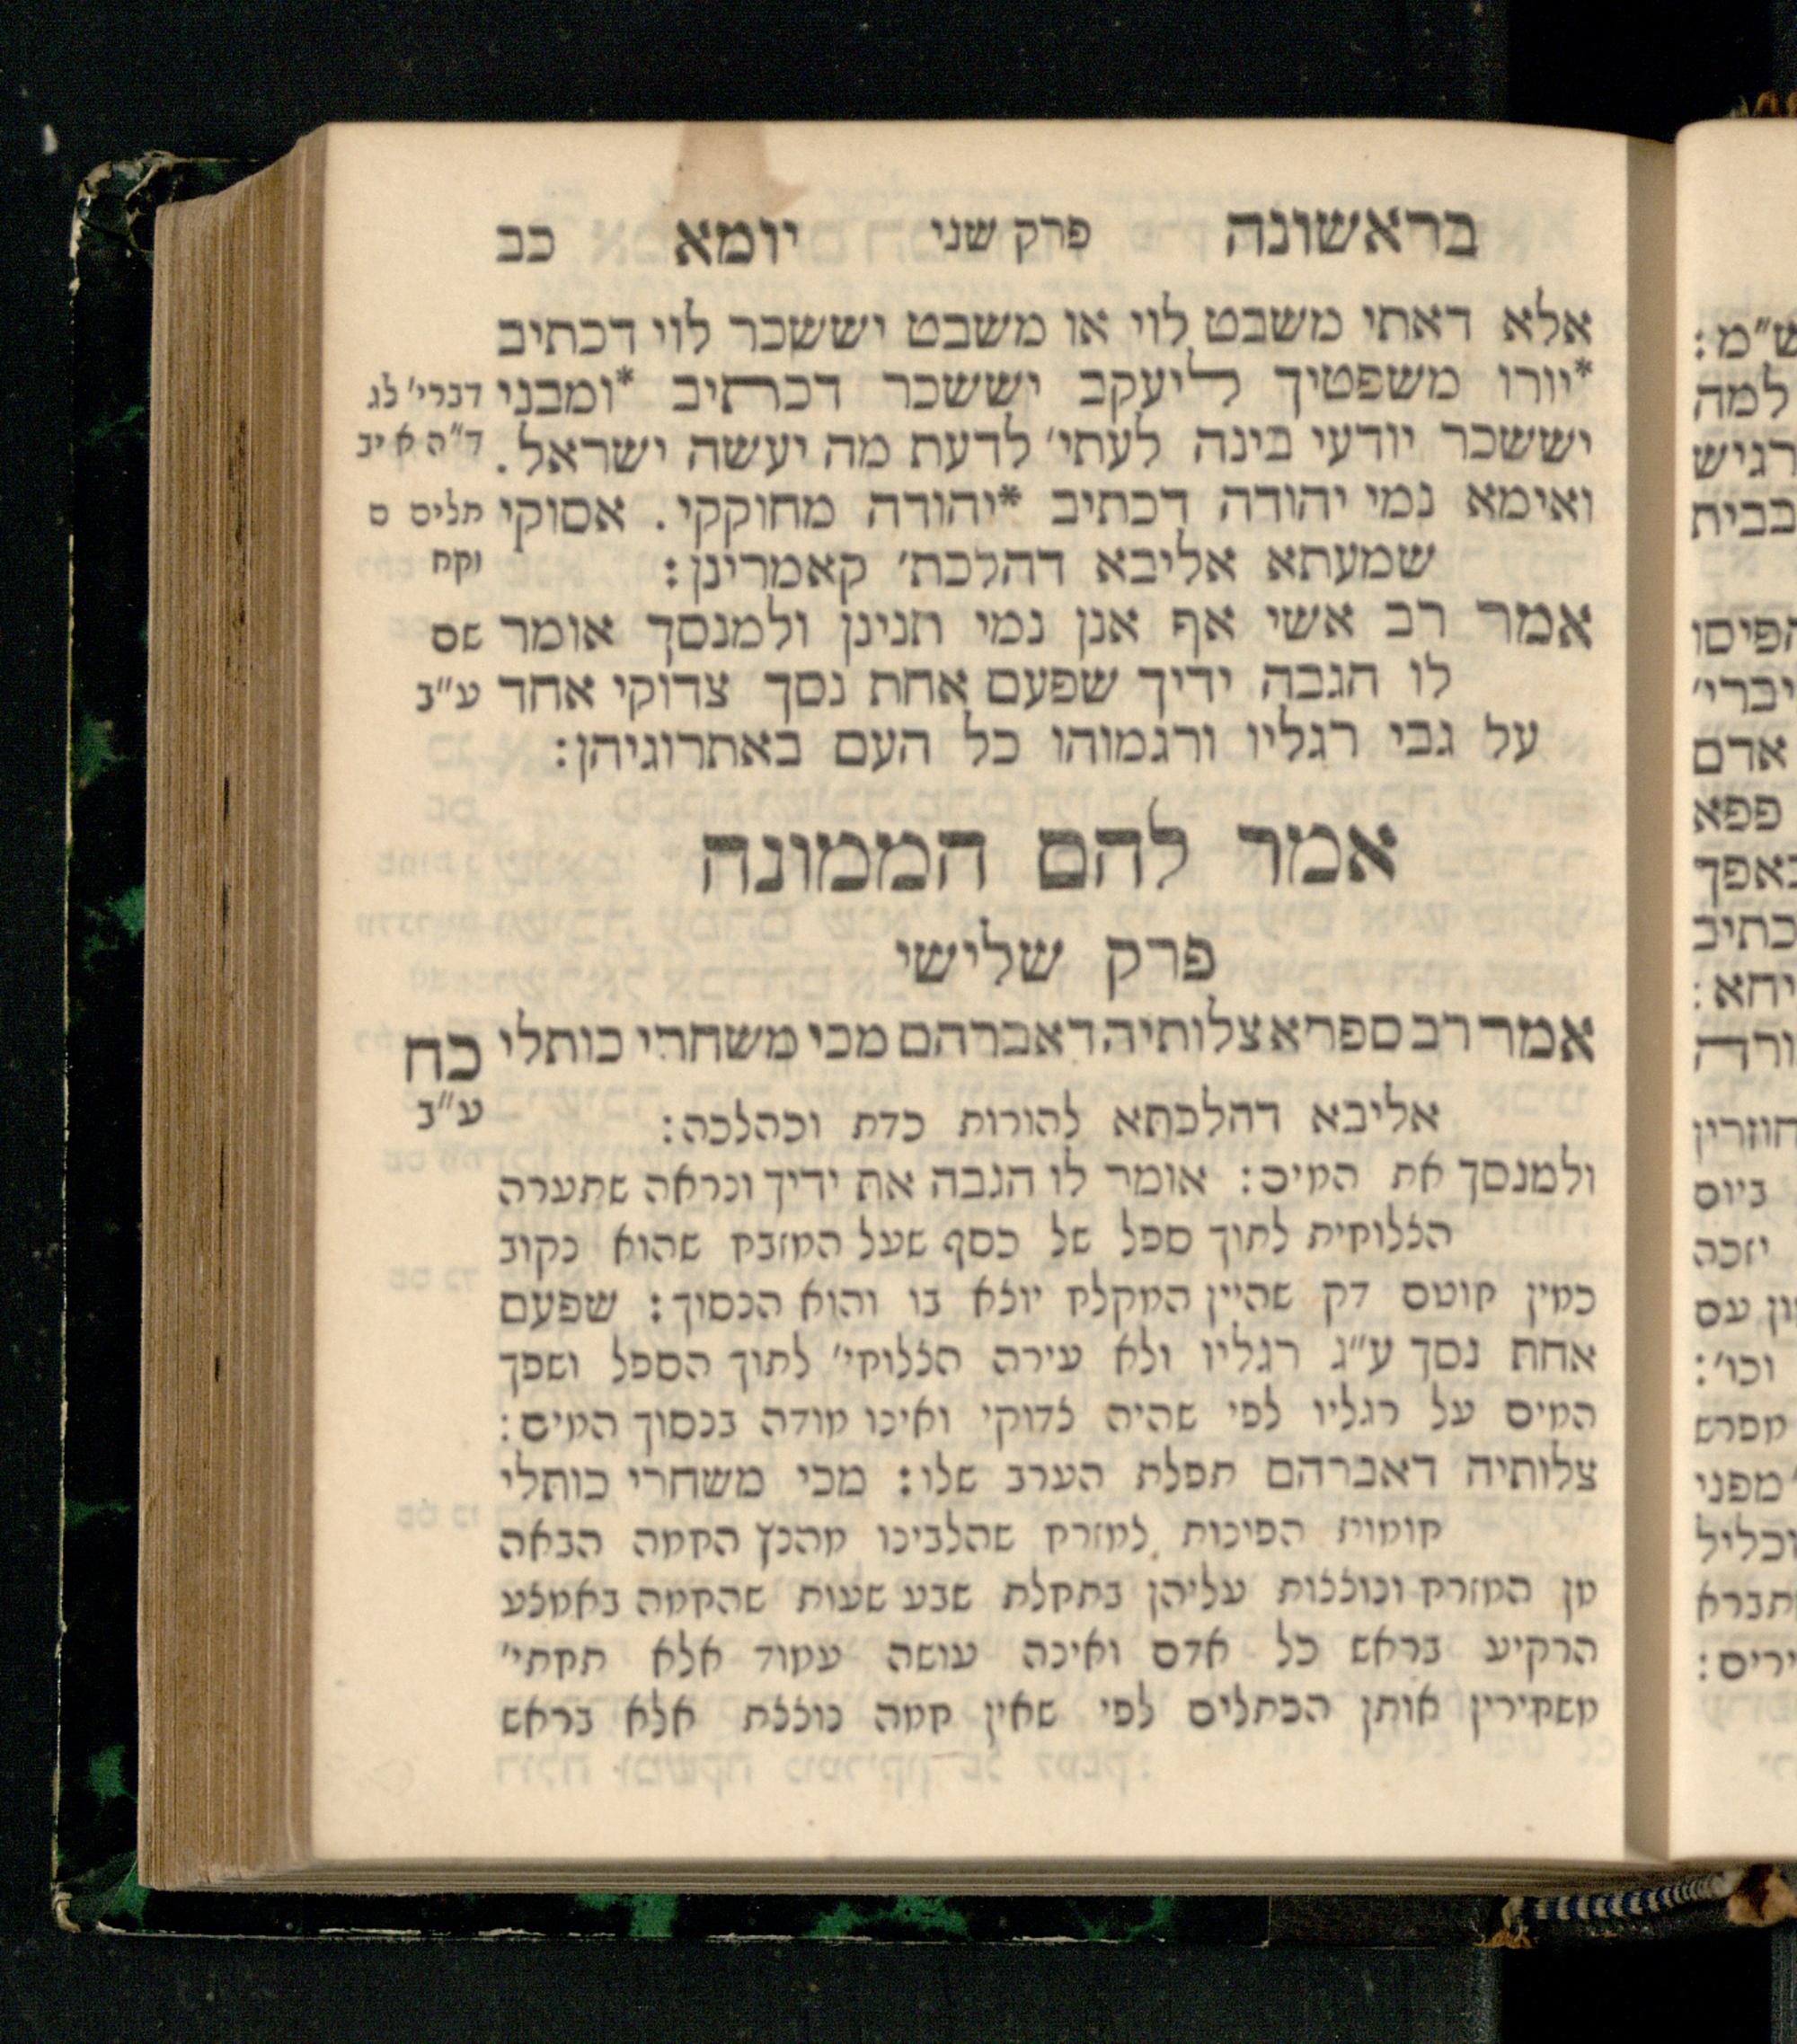 בראשונה פרק שני יומא כב
אלא דאתי משבט לוי או משבט יששכר לוי דכתיב
*יורו משפטיך ליעקב יששכר דכתיב *ומבני דברי׳ לג
יששכר יודעי בינה לעתי׳ לדעת מה יעשה ישראל. ד״ה א יב
ואימא נמי יהודה דכתיב *יהודה מחוקקי. אסוקי תלים ס
שמעתא אליבא דהלכת׳ קאמרינן: וקח
אמר רב אשי אף אנן נמי תנינן ולמנסך אומר שם
לו הגבה ידיך שפעם אחת נסך צדוקי אחד ע״ב
על גבי רגליו ורגמוהו כל העם באתרוגיהן:
אמר להם הממונה
פרק שלישי
אמר רב ספרא צלותיה דאברהם מכי משחרי כותלי כח
ע״ב
אליבא דהלכתא להורות כדת וכהלכה:
ולמנסך את המים: אומר לו הגבה את ידיך ונראה שתערה
הצלוחית לתוך ספל של כסף שעל המזבח שהוא נקוב
כמין חוטם דק שהיין המקלח יוצא בו והוא הנסוך: שפעם
אחת נסך ע״ג רגליו ולא עירה הצלוחי׳ לתוך הספל ושפך
המים על רגליו לפי שהיה צדוקי ואינו מודה בנסוך המים:
צלותיה דאברהם תפלת הערב שלו: מכי משחרי כותלי
חומות הפונות למזרח שהלבינו מהנץ החמה הבאה
מן המזרח ונוצצות עליהן בתחלת שבע שעות שהחמה באמצע
הרקיע בראש כל אדם ואינה עושה עמוד אלא תחתי׳
משחירין אותן הכתלים לפי שאין חמה נוצצת אלא בראש